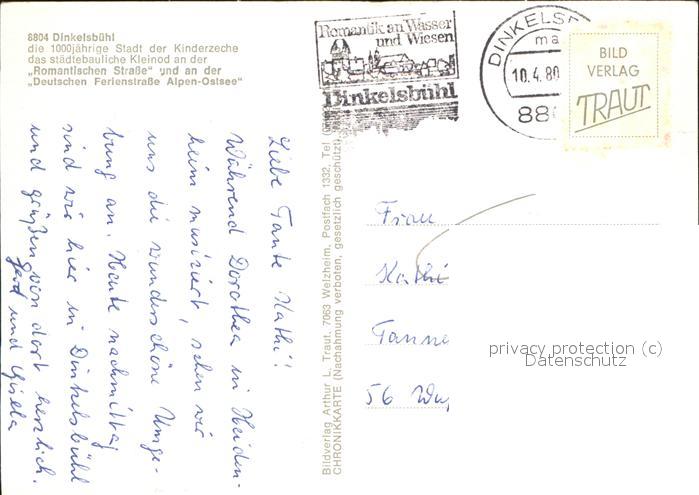 8804 Dinkelsbühl
die 1000jährige Stadt der Kinderzeche
das städtebauliche Kleinod an der
„Romantischen Straße" und an der
„Deutschen Ferienstraße Alpen-Ostsee"
Romantik an Wasser
und Wiesen
Dinkelsbühl
DINKELSB
10.4.80
88
BILD
VERLAG
TRAUT
Liebe Tante Kathi!
Während Dorothea in Heiden-
heim musiziert, sehen wir
uns die wunderschöne Umge-
bung an. Heute nachmittag
sind wir hier in Dinkelsbühl
und grüßen von dort herzlich.
Gerd und Gisela
Bildverlag Arthur L. Traut, 7063 Welzheim, Postfach 1332, Tel
CHRONIKKARTE (Nachahmung verboten, gesetzlich geschützt)
Frau
Kathi
Tanne
56 Wup
privacy protection (c)
Datenschutz